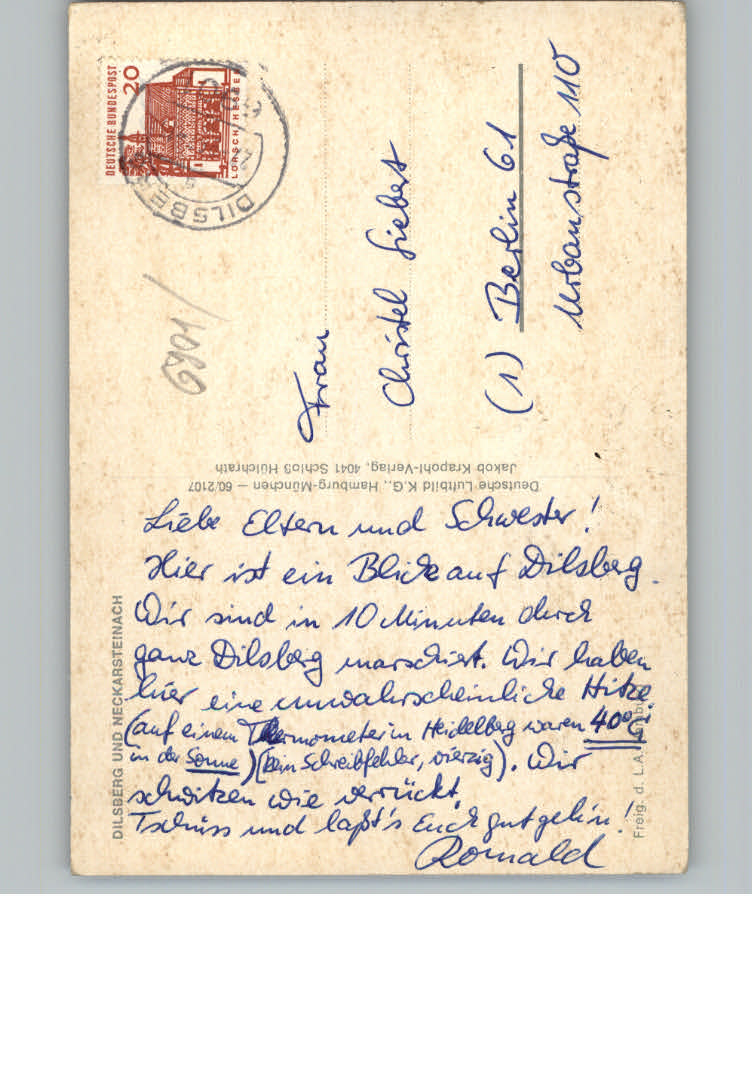 DEUTSCHE BUNDESPOST
20
LORSCH/HESSEN
DILSBERG
6901/
Frau
Christel Siebert
(1) Berlin 61
Urbanstraße 110
Deutsche Luftbild K.G., Hamburg-München — 60/2107
Jakob Krapohl-Verlag, 4041 Schloß Hülchrath
DILSBERG UND NECKARSTEINACH
Liebe Eltern und Schwester!
Hier ist ein Blick auf Dilsberg.
Wir sind in 10 Minuten durch
ganz Dilsberg marschiert. Wir haben
hier eine unwahrscheinliche Hitze
(auf einem Thermometer in Heidelberg waren 40°C
in der Sonne) (kein Schreibfehler, vierzig). Wir
schwitzen wie verrückt.
Tschüss und laßt's Euch gut gehn!
Romald
Freig. d. L.A.